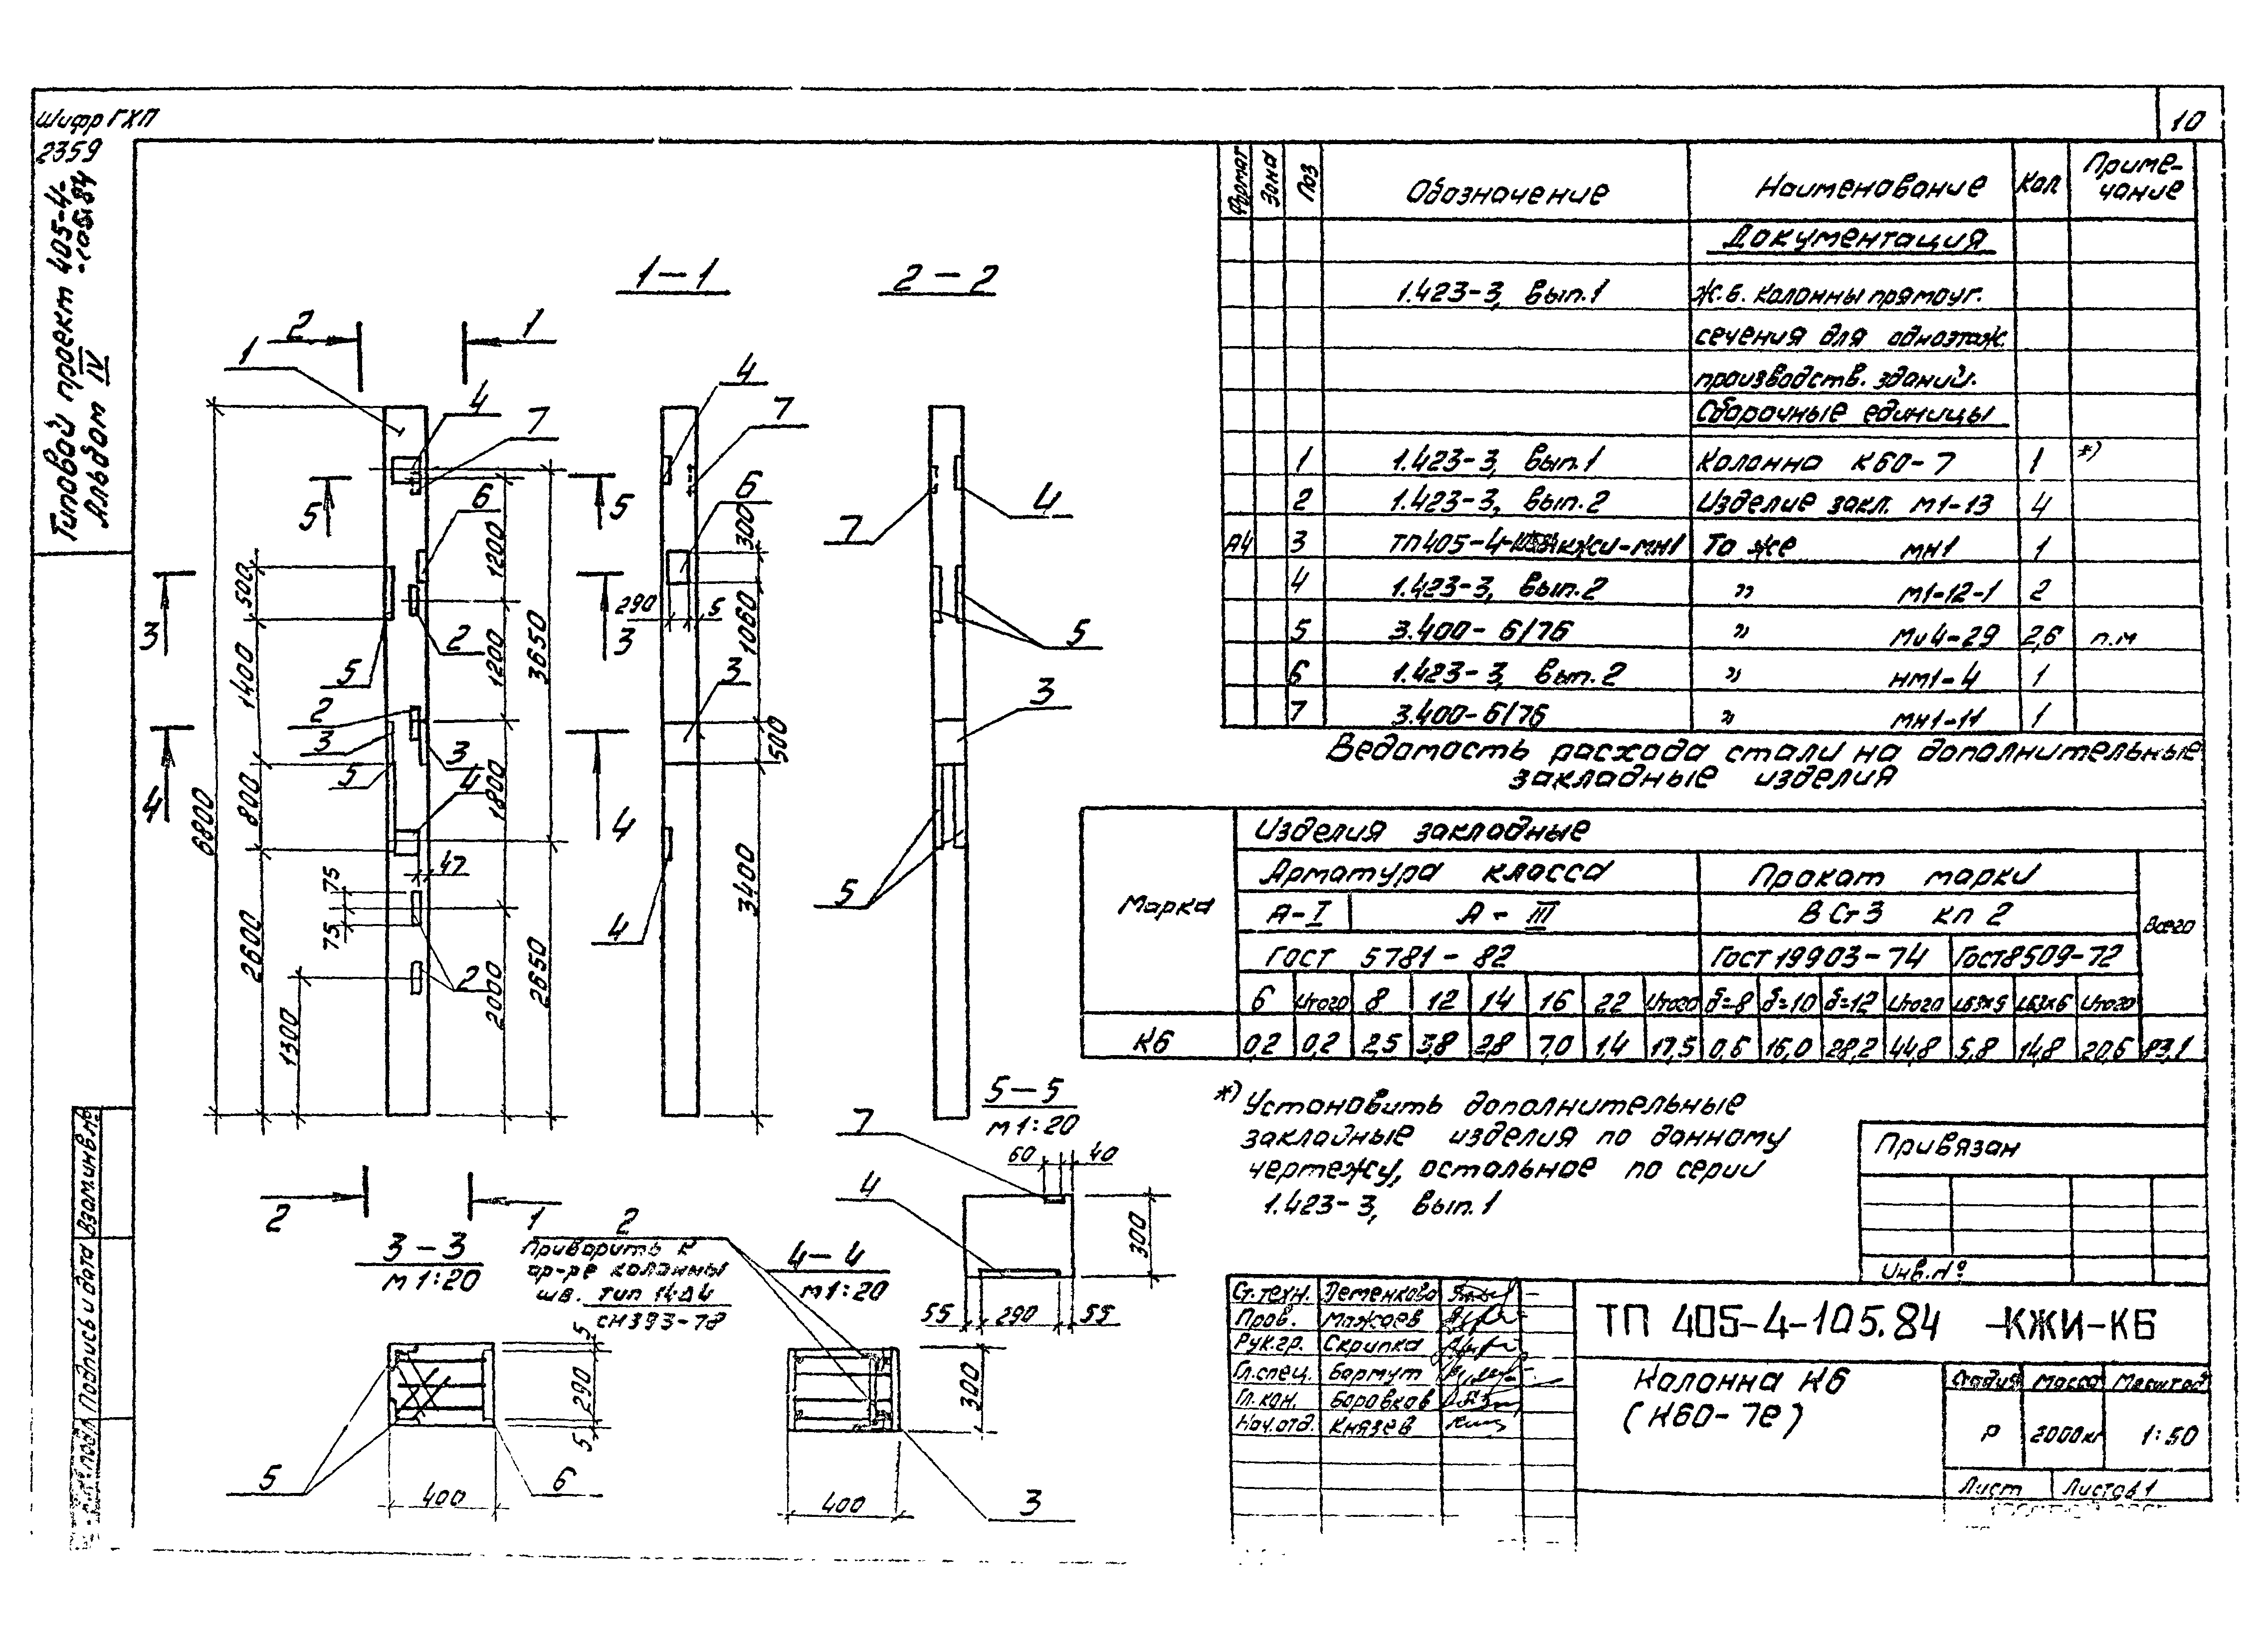 Шифр ГХП
2359
Типовой проект 405-4-
-105.84
Альбом IV
10
1-1
2-2
2
1
1
4
7
6
5
5
3
3
4
4
2
5
2
3
5
3
4
2
6800
500
1400
800
2600
1300
75
75
47
1200
1200
1800
2000
3650
2650
4
7
6
300
290
5
1060
3
500
3400
4
7
4
5
3
5
2
1
3-3
М 1:20
2
Приварить к
ар-ре колонны
шв. тип 14Δ4
СН393-78
4-4
М1:20
5-5
М 1:20
7
60
40
4
300
55
290
55
5
290
5
400
5
6
300
400
3
Формат
Зона
Поз
Обозначение
Наименование
Кол
Приме-
чание
Документация
1.423-3, вып.1 Ж.б. колонны прямоуг.
сечения для одноэтаж.
производств. зданий.
Сборочные единицы
1 1.423-3, вып.1 Колонна К60-7 1 *)
2 1.423-3, вып.2 Изделие закл. М1-13 4
А4 3 ТП405-4- КЖИ-МН1 То же МН1 1
4 1.423-3, вып.2 " М1-12-1 2
5 3.400-6/76 " Ми4-29 2,6 п.м
6 1.423-3, вып.2 " НМ1-4 1
7 3.400-6/76 " МН1-11 1
Ведомость расхода стали на дополнительные
закладные изделия
Марка
Изделия закладные
Арматура класса Прокат марки
А-I А-III ВСт3 кп2
Всего
Гост 5781-82 Гост19903-74 Гост8509-72
6 Итого 8 12 14 16 22 Итого δ=8 δ=10 δ=12 Итого L63х5 L63х6 Итого
К6 0,2 0,2 2,5 3,8 2,8 7,0 1,4 17,5 0,6 16,0 28,2 44,8 5,8 14,8 20,6 83,1
*) Установить дополнительные
закладные изделия по данному
чертежу, остальное по серии
1.423-3, вып.1
Привязан
Инв.№
Ст.техн. Деменкова
Пров. Можаев
Рук.гр. Скрипка
Гл.спец. Бармут
Гл.кон. Боровков
Нач.отд. Князев
ТП 405-4-105.84 -КЖИ-К6
Колонна К6
(К60-7е)
Стадия Масса Масштаб
Р 2000кг 1:50
Лист Листов 1
Взам.инв.№
Подпись и дата